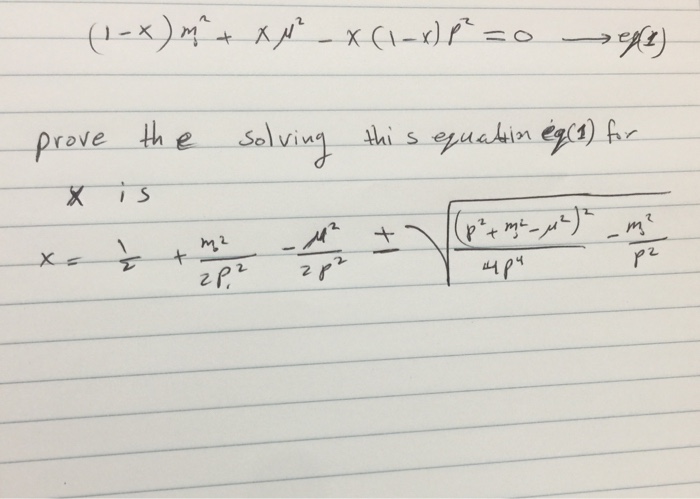 (1-x) m₀² + x μ² - x (1-x) p² = 0 → eq(1)
prove the solving this equation eq(1) for
x is
x = 1/2 + m₀²/2p² - μ²/2p² ± √((p² + m₀² - μ²)²/4p⁴ - m₀²/p²)